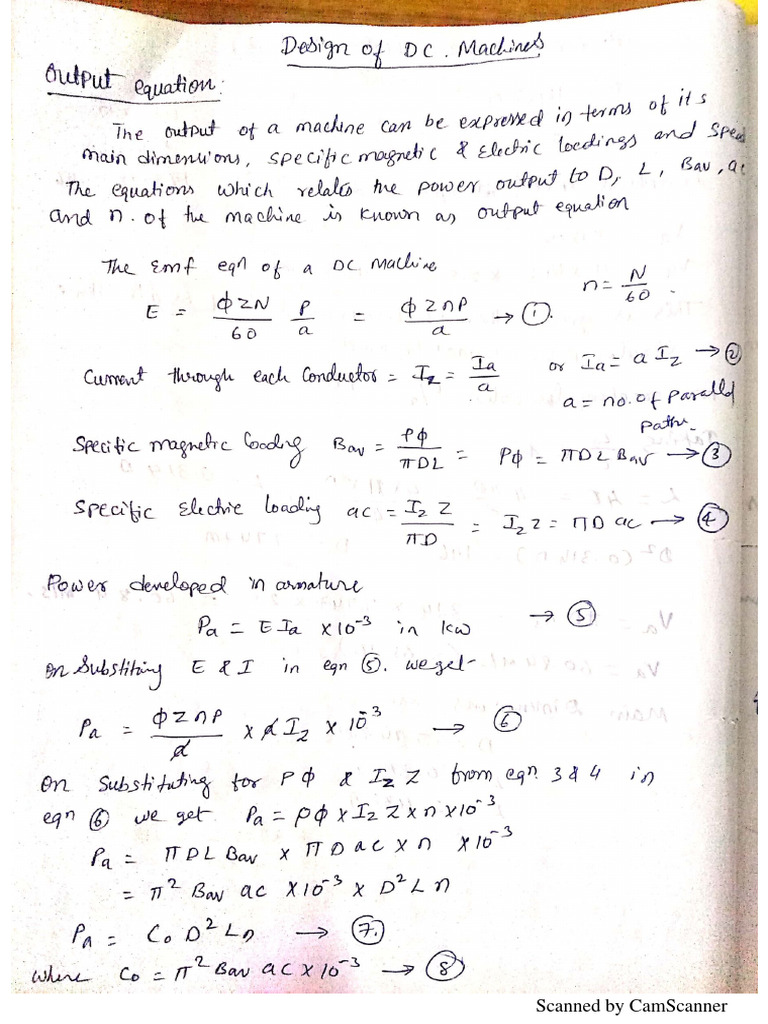 Design of DC. Machines
Output equation:
The output of a machine can be expressed in terms of its
main dimensions, specific magnetic & Electric loadings and speed
The equations which relates the power output to D, L, Bav, ac
and n. of the machine is known as output equation
The Emf eqn of a DC Machine
n = N/60.
E = ΦZN/60 P/a = ΦZnP/a → ①.
Current through each Conductor = Iz = Ia/a or Ia = a Iz → ②
a = no. of parallel
path.
Specific magnetic loading Bav = Pφ/πDL = Pφ = πDL Bav → ③
Specific Electric loading ac = Iz Z/πD = Iz Z = πD ac → ④
Power developed in armature
Pa = E Ia × 10⁻³ in kw → ⑤
on Substiting E & I in eqn ⑤. we get-
Pa = ΦZnP/a × a Iz × 10⁻³ → ⑥
On Substituting for Pφ & Iz Z from eqn. 3 & 4 in
eqn ⑥ we get Pa = Pφ × Iz Z × n × 10⁻³
Pa = πDL Bav × πD ac × n × 10⁻³
= π² Bav ac × 10⁻³ × D² L n
Pa = Co D² L n → ⑦.
where Co = π² Bav ac × 10⁻³ → ⑧
Scanned by CamScanner